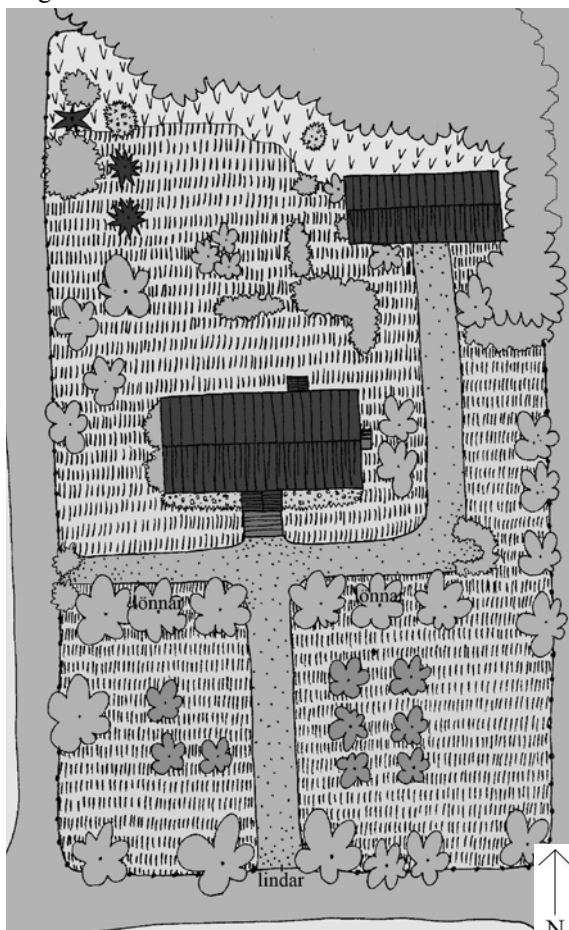 lönnar lönnar
lindar
N